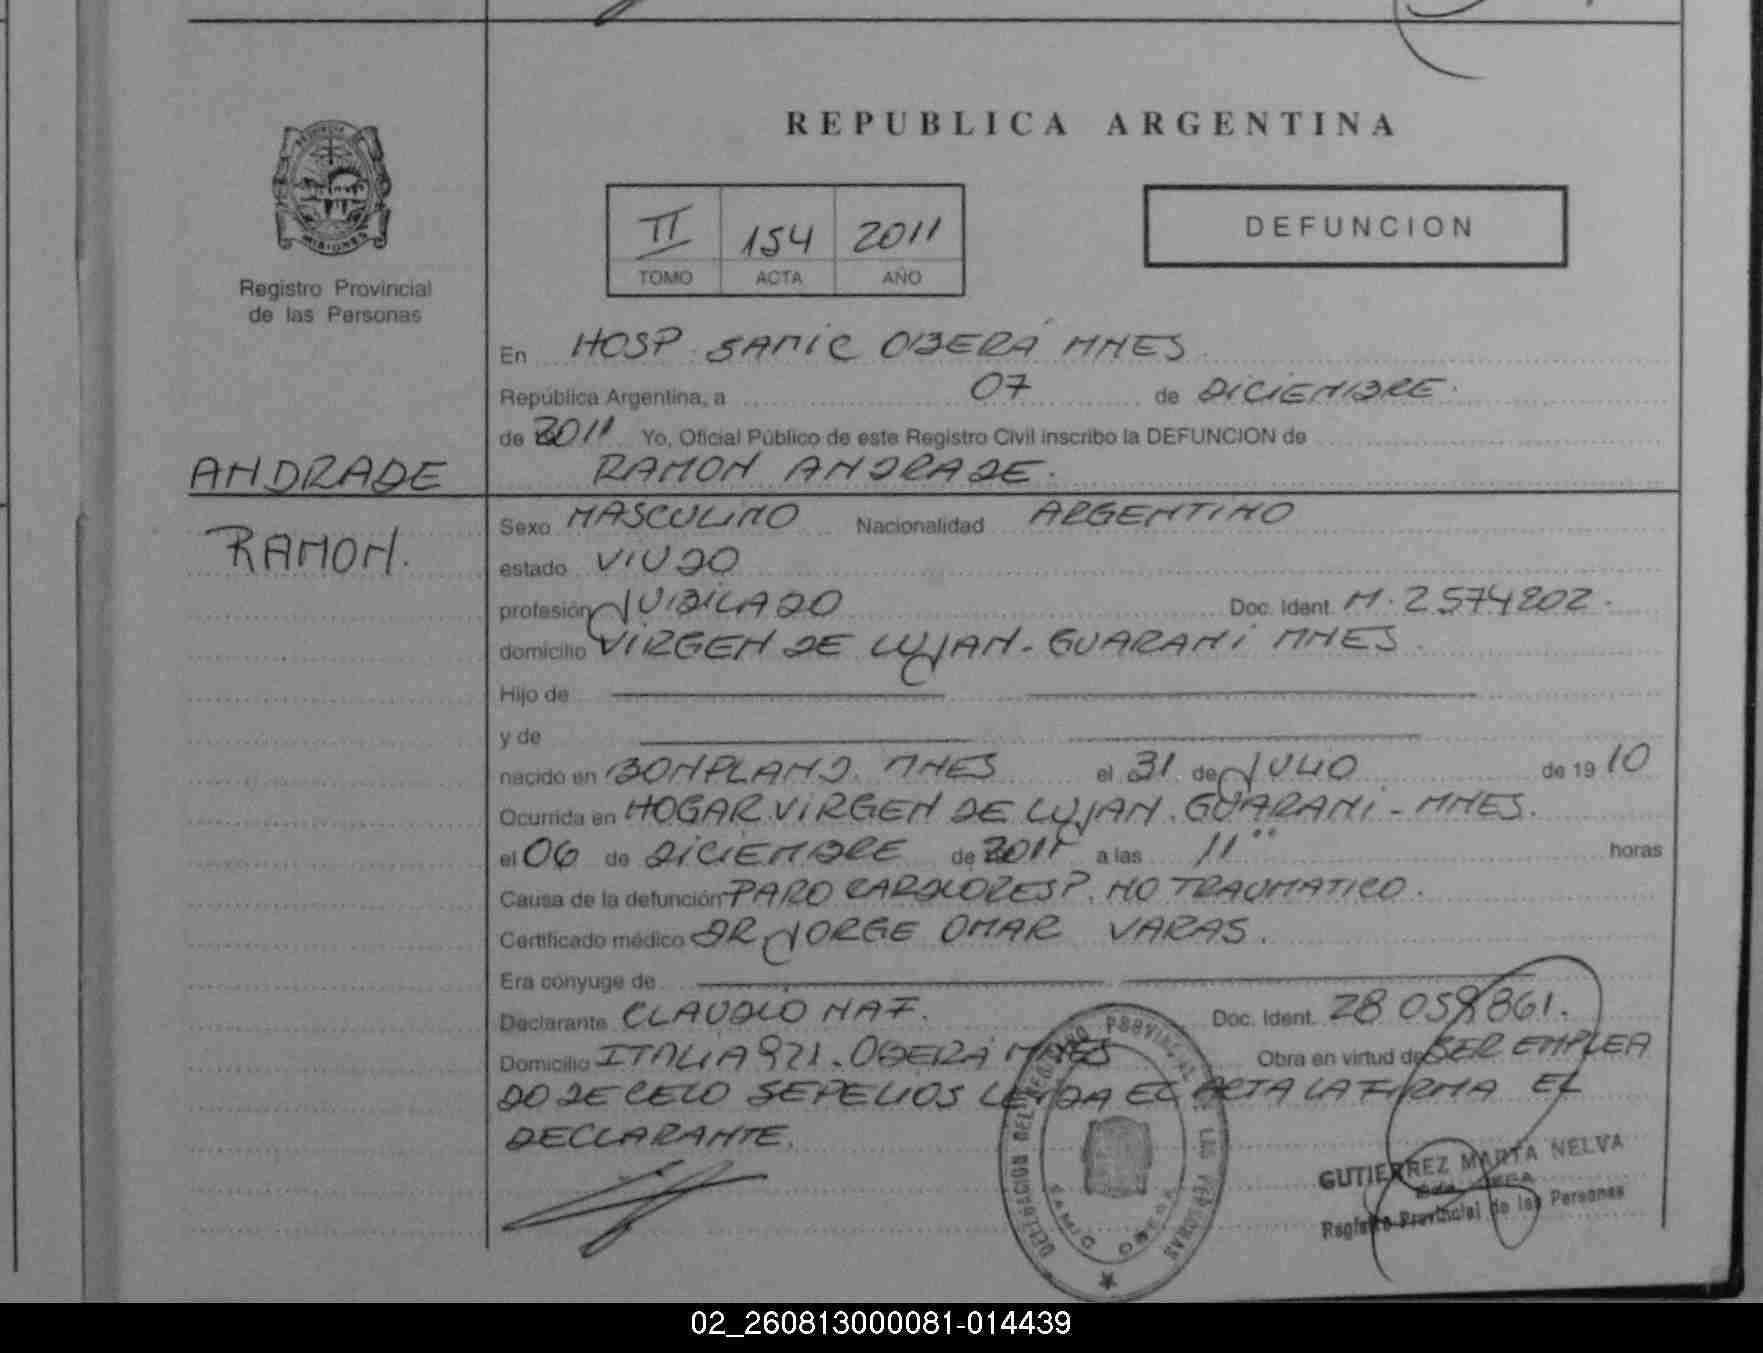 REPUBLICA ARGENTINA
II 154 2011
TOMO ACTA AÑO
DEFUNCION
MISIONES
Registro Provincial
de las Personas
En HOSP. SAMIC OBERÁ MNES.
República Argentina, a 07 de DICIEMBRE.
de 2011 Yo, Oficial Público de este Registro Civil inscribo la DEFUNCION de
ANDRADE
RAMON ANDRADE.
RAMON.
Sexo MASCULINO Nacionalidad ARGENTINO
estado VIUDO
profesión JUBILADO Doc. Ident. M. 2574202.
domicilio VIRGEN DE LUJAN - GUARANI MNES.
Hijo de
y de
nacido en BONPLAND. MNES el 31 de JULIO de 1910
Ocurrida en HOGAR VIRGEN DE LUJAN. GUARANI - MNES.
el 06 de DICIEMBRE de 2011 a las 11°° horas
Causa de la defunción PARO CARDIORESP. NO TRAUMATICO.
Certificado médico DR JORGE OMAR VARAS.
Era cónyuge de
Declarante CLAUDIO NAF. Doc. Ident. 28 059 861.
Domicilio ITALIA 921. OBERÁ MNES Obra en virtud de SER EMPLEA
DO DE CELO SEPELIOS LEIDA EL ACTA LA FIRMA EL
DECLARANTE.
DELEGACION DEL REGISTRO PROVINCIAL DE LAS PERSONAS
SAMIC OBERA
GUTIERREZ MARTA NELVA
Registro Provincial de las Personas
02_260813000081-014439